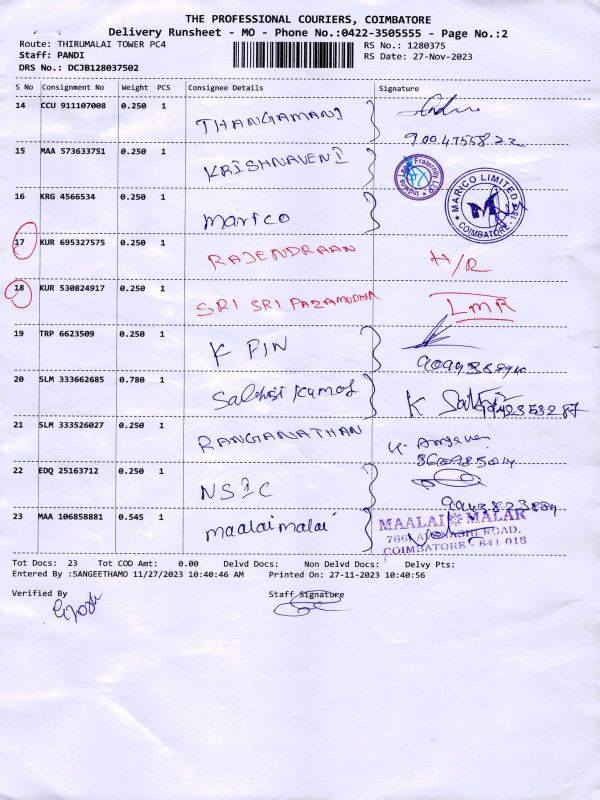 THE PROFESSIONAL COURIERS, COIMBATORE
Delivery Runsheet - MO - Phone No.:0422-3505555 - Page No.:2
Route: THIRUMALAI TOWER PC4
RS No.: 1280375
Staff: PANDI
RS Date: 27-Nov-2023
DRS No.: DCJB128037502
S No Consignment No Weight PCS Consignee Details Signature
14 CCU 911107008 0.250 1 THANGAMANI
15 MAA 573633751 0.250 1 KRISHNAVENI
16 KRG 4566534 0.250 1 marico
MARICO LIMITED
COIMBATORE
17 KUR 695327575 0.250 1 RAJENDRAAN H/R
18 KUR 530824917 0.250 1 SRI SRI PAZAMUDHIR LMR
19 TRP 6623509 0.250 1 K PIN
20 SLM 333662685 0.780 1
21 SLM 333526027 0.250 1 RANGANATHAN
22 EDQ 25163712 0.250 1 NSIC
23 MAA 106858881 0.545 1 maalaimalai
MAALAI MALAR
766, AVINASHI ROAD,
COIMBATORE - 641 018
Tot Docs: 23 Tot COD Amt: 0.00 Delvd Docs: Non Delvd Docs: Delvy Pts:
Entered By :SANGEETHAMO 11/27/2023 10:40:46 AM Printed On: 27-11-2023 10:40:56
Verified By Staff Signature